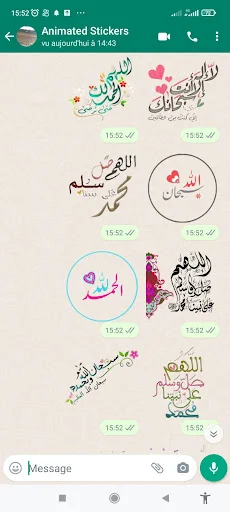 15:52
Animated Stickers
vu aujourd'hui à 14:43
اللهم لك الحمد حتى ترضى
لا إله إلا أنت سبحانك
إني كنت من الظالمين
15:52
15:52
اللهم صل
وسلم على نبينا
محمد
سبحان الله
15:52
15:52
الحمد لله
اللهم
صل وسلم
على نبينا محمد
15:52
15:52
سبحان الله
وبحمده
سبحان الله العظيم
اللهم
صل وسلم
على نبينا
محمد
15:52
15:52
Message